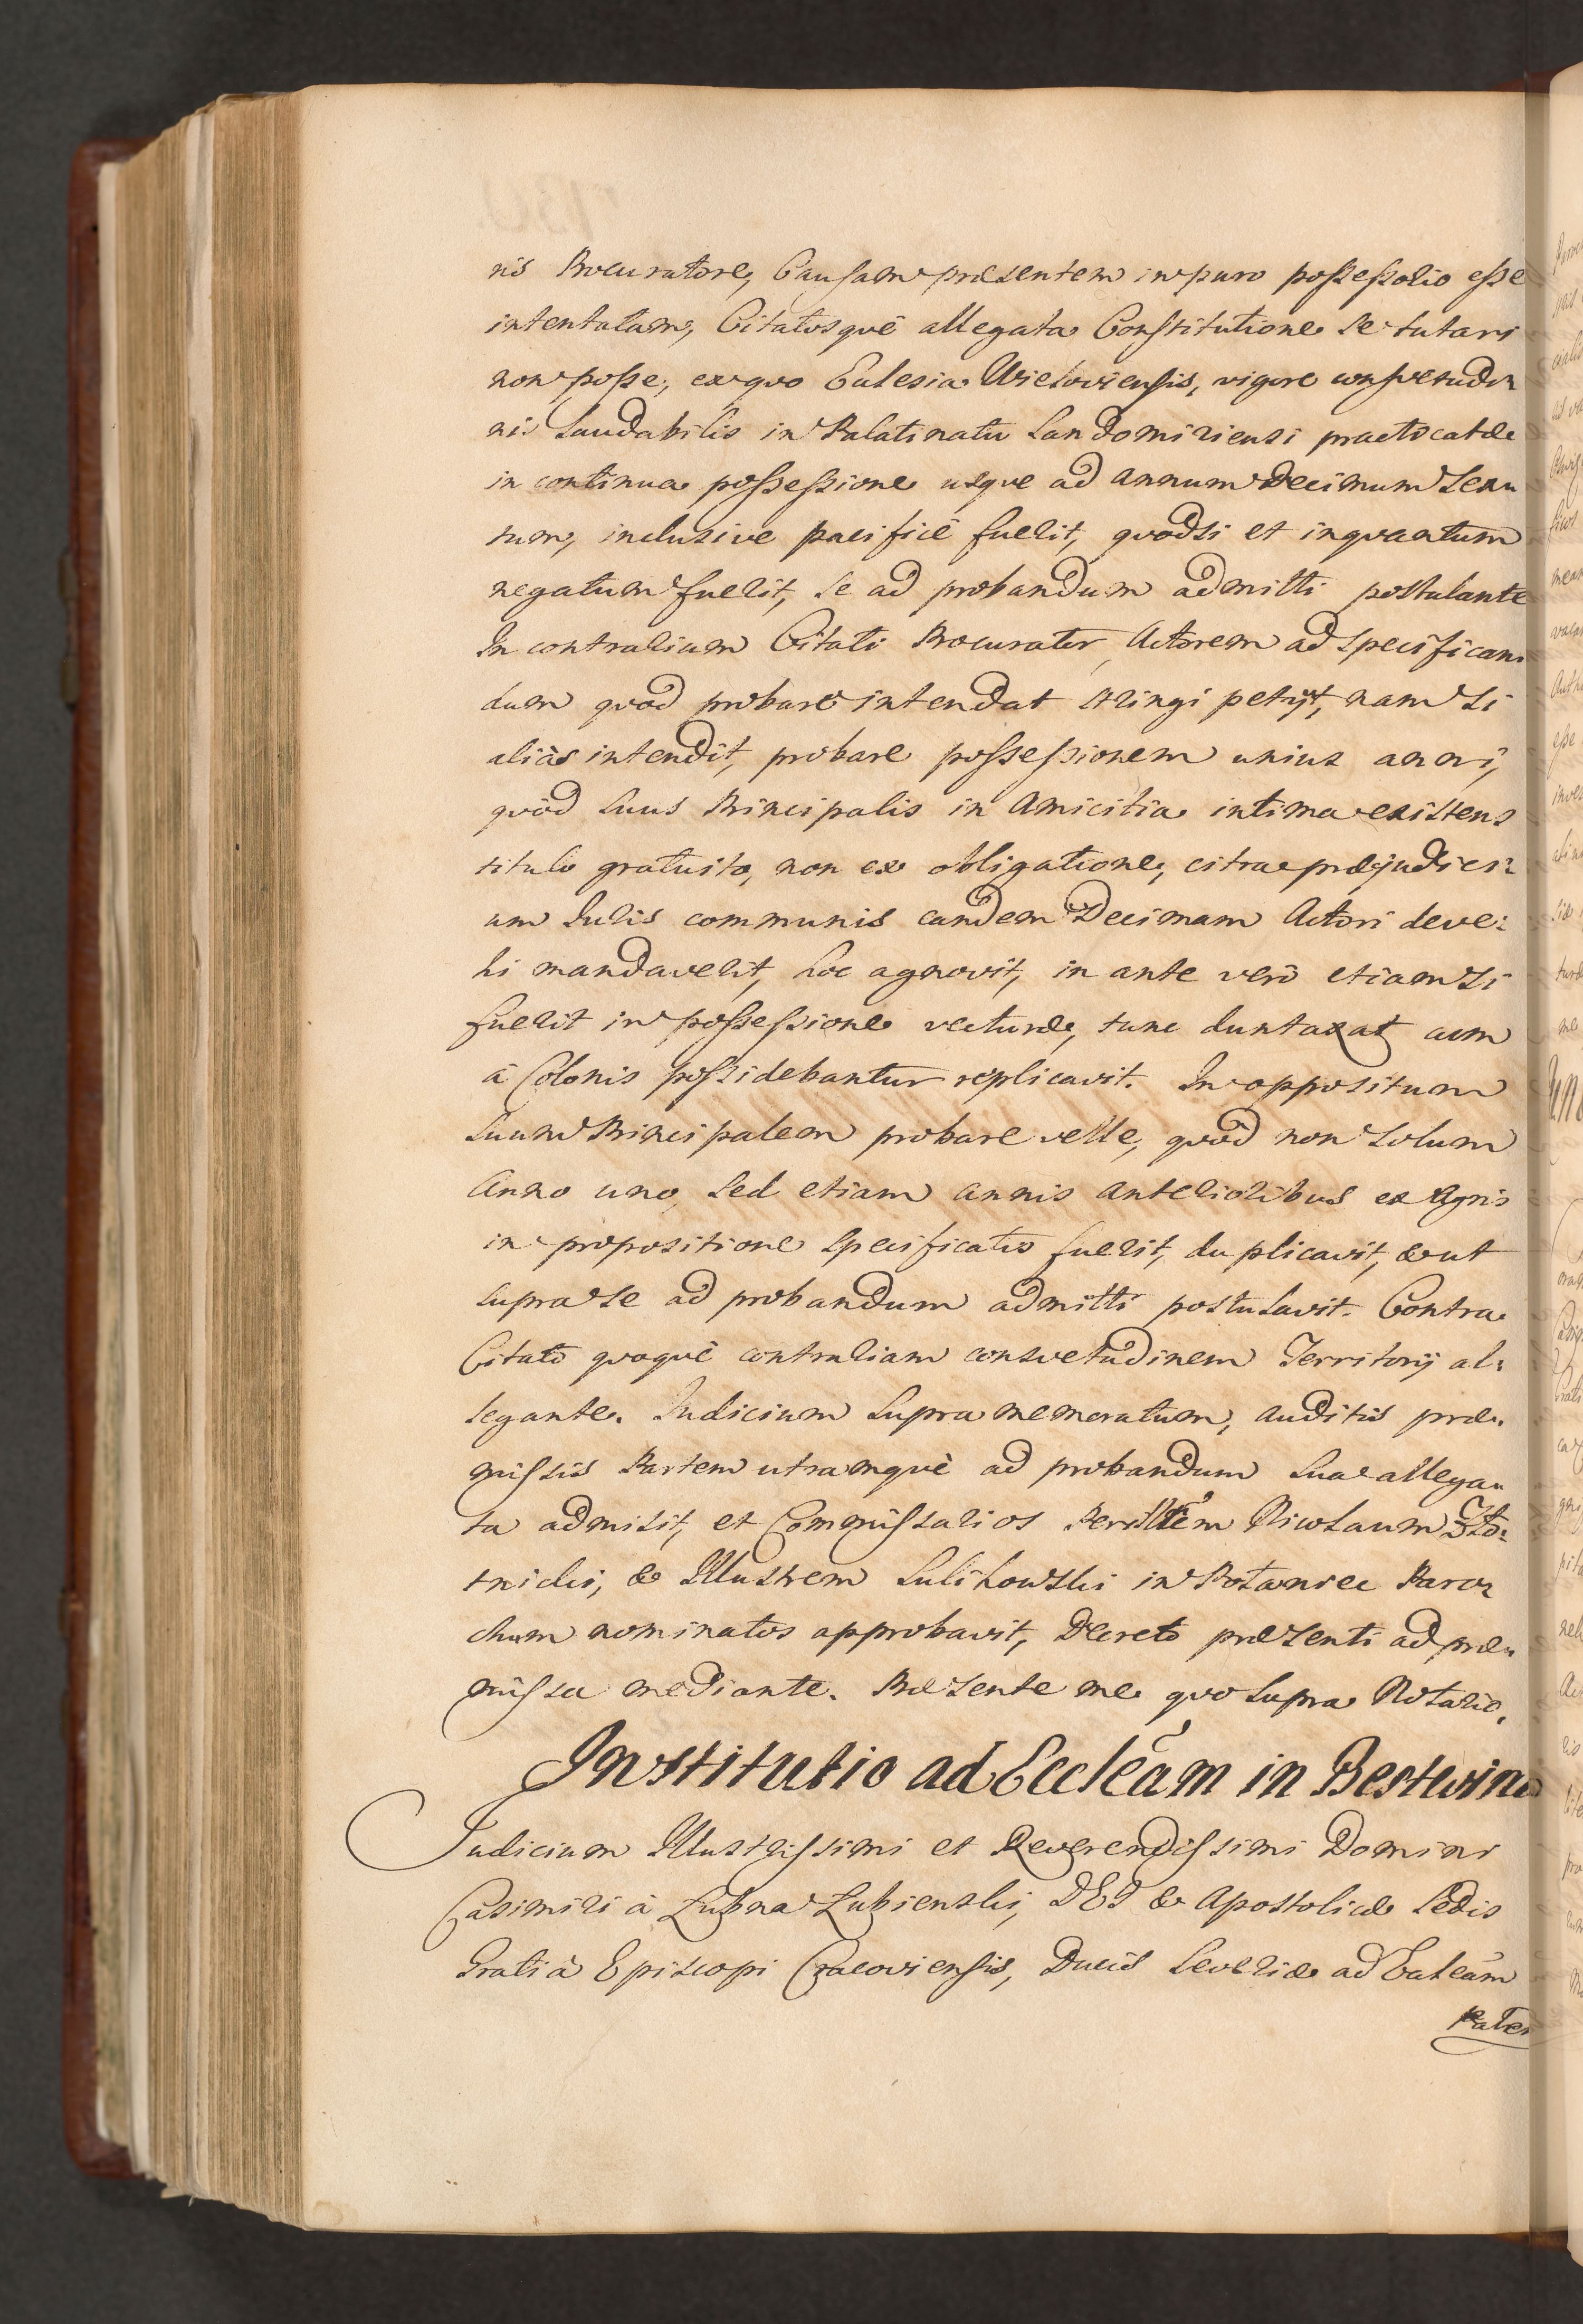 nis Procuratore, Causam præsentem in puro possessorio esse
intentatam, Citatosquè allegata Constitutione se tutari
non posse, ex quo Ecclesia Wielowiensis, vigore consvetudi
nis laudabilis in Palatinatu Sandomiriensi practicatæ
in continua possessione usque ad annum decimum sex
tum, inclusive pacificè fuerit, quodsi et inquantum
negatum fuerit, se ad probandum admitti postulante
In contrarium Citati Procurator, Actorem ad specifican
dum quod probare intendat stringi petijt, nam si
aliàs intendit, probare possessionem unius anni,
quòd suus Principalis in amicitia intima existens
titulo gratuito, non ex obligatione, citra præjudici:
um Iuris communis eandem Decimam Actori deve:
hi mandaverit, hoc agnovit, in ante verò etiam si
fuerit in possessione vecturæ, tunc duntaxat cum
à Colonis possidebantur replicavit. In oppositum
suum Principalem probare velle, quòd non solum
Anno uno, sed etiam annis anterioribus ex Agris
in propositione specificatis fuerit, duplicavit, & ut
supra se ad probandum admitti postulavit. Contra
Citato quoquè contrariam consvetudinem Territorij al:
legante. Iudicium supra memoratum, auditis præ
missis Partem utramquè ad probandum sua allega
ta admisit, et Commissarios Perillrem Nicolaum
tnicki, & Illustrem Sulikowski in Połaniec Paro
chum nominatos approbavit, Decreto præsenti ad præ
missa mediante. Præsente me quo supra Notario.
Institutio ad Eccleam in Bestwina
Iudicium Illustrissimi et Reverendissimi Domini
Casimiri à Łubna Łubienski, DEI & Apostolicæ Sedis
Gratiâ Episcopi Cracoviensis, Ducis Severiæ ad Eccleam